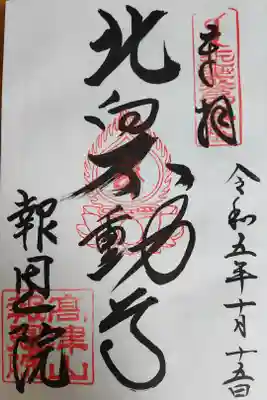 奉拝
令和五年十月十五日
北向不動尊
報恩院
高津山
報恩院